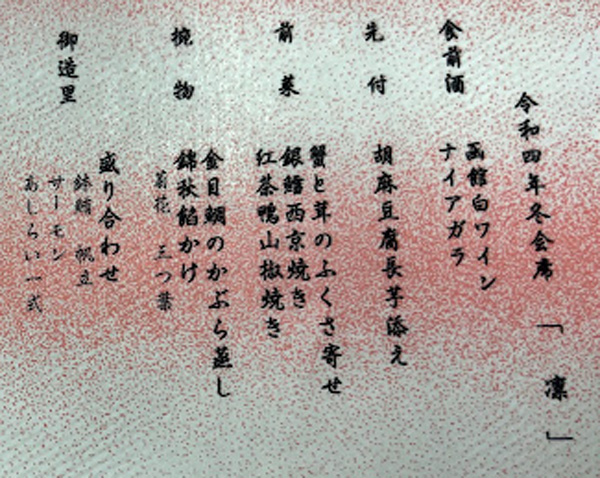 令和四年冬会席 「凛」
食前酒
函館白ワイン
ナイアガラ
先付
胡麻豆腐長芋添え
前菜
蟹と茸のふくさ寄せ
銀鱈西京焼き
紅茶鴨山椒焼き
椀物
金目鯛のかぶら蒸し
錦秋餡かけ
菊花 三つ葉
御造里
盛り合わせ
鉢鮪 帆立
サーモン
あしらい一式